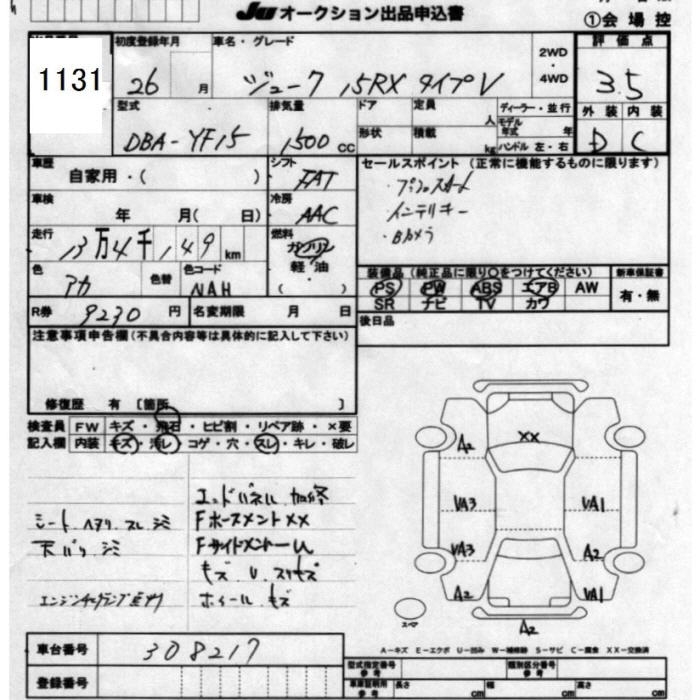 JU オークション出品申込書
①会場控
1131
初度登録年月 車名・グレード 2WD・4WD 評価点
26 月 ジューク 15RX タイプV 3.5
型式 排気量 ドア 定員 人 ディーラー・並行 外装 内装
DBA-YF15 1500 CC 形状 積載 kg モデル年式 年 ハンドル 左・右 D C
車歴 シフト セールスポイント (正常に機能するものに限ります)
自家用・( ) FAT ・プッシュスタート
車検 冷房 ・インテリキー
年 月( 日) AAC ・Bカメラ
走行 燃料
13万4千149km ガソリン
色 色替 色コード 軽油 装備品(純正品に限り○をつけてください) 新車保証書
アカ NAH ( ) PS PW ABS エアB AW 有・無
SR ナビ TV カワ
R券 9230 円 名変期限 月 日 後日品
注意事項申告欄(不具合内容等は具体的に記入して下さい)
修復歴 有 〔箇所 〕
検査員 FW キズ・飛石・ヒビ割・リペア跡・×要
記入欄 内装 キズ・汚レ・コゲ・穴・スレ・キレ・破レ
エンドパネル 加修
シート ヘタリ スレ シミ FホースメントXX
天バリ シミ Fサイドメンバー U
キズ U スリキズ
エンジンチェックランプ点灯 ホイールキズ
XX
A2
VA3 VA1
VA3 A2
A2 VA1
A2
スペア
A-キズ E-エクボ U-凹み W-補修跡 S-サビ C-腐食 XX-交換済
車台番号 308217
型式指定番号 参考 類別区分番号 参考
登録番号 車庫証明用 参考 長さ cm 幅 cm 高さ cm